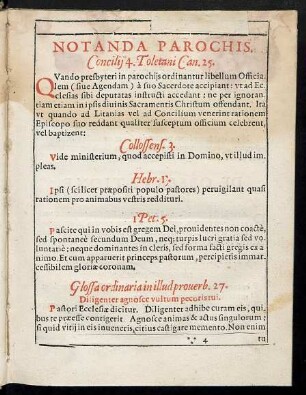 NOTANDA PAROCHIS,
Concilij 4. Toletani Can. 25.
QVando presbyteri in parochijs ordinantur libellum Officia
lem (siue Agendam) à suo Sacerdote accipiant: vt ad Ec
clesias sibi deputatas instructi accedant: ne per ignoran
tiam etiam in ipsis diuinis Sacramentis Christum offendant. Ita
vt quando ad Litanias vel ad Concilium venerint rationem
Episcopo suo reddant qualiter susceptum officium celebrent,
vel baptizent:
Collossens. 3.
Vide ministerium, quod accepisti in Domino, vt illud im
pleas.
Hebr. 13.
Ipsi (scilicet præpositi populo pastores) peruigilant quasi
rationem pro animabus vestris reddituri.
1 Pet. 5.
Pascite qui in vobis est gregem Dei, prouidentes non coactè,
sed spontaneè secundum Deum, neq; turpis lucri gratia sed vo
luntariè; neque dominantes in cleris, sed forma facti gregis ex a
nimo. Et cum apparuerit princeps pastorum, percipietis immar.
cessibilem gloriæ coronam,
Glossa ordinaria in illud prouerb. 27.
Diligenter agnosce vultum pecoris tui.
Pastori Ecclesiæ dicitur. Diligenter adhibe curam eis, qui,
bus te præesse contigerit. Agnosce animas & actus singulorum:
si quid vitij in eis inueneris, citius castigare memento. Non enim
4 tu